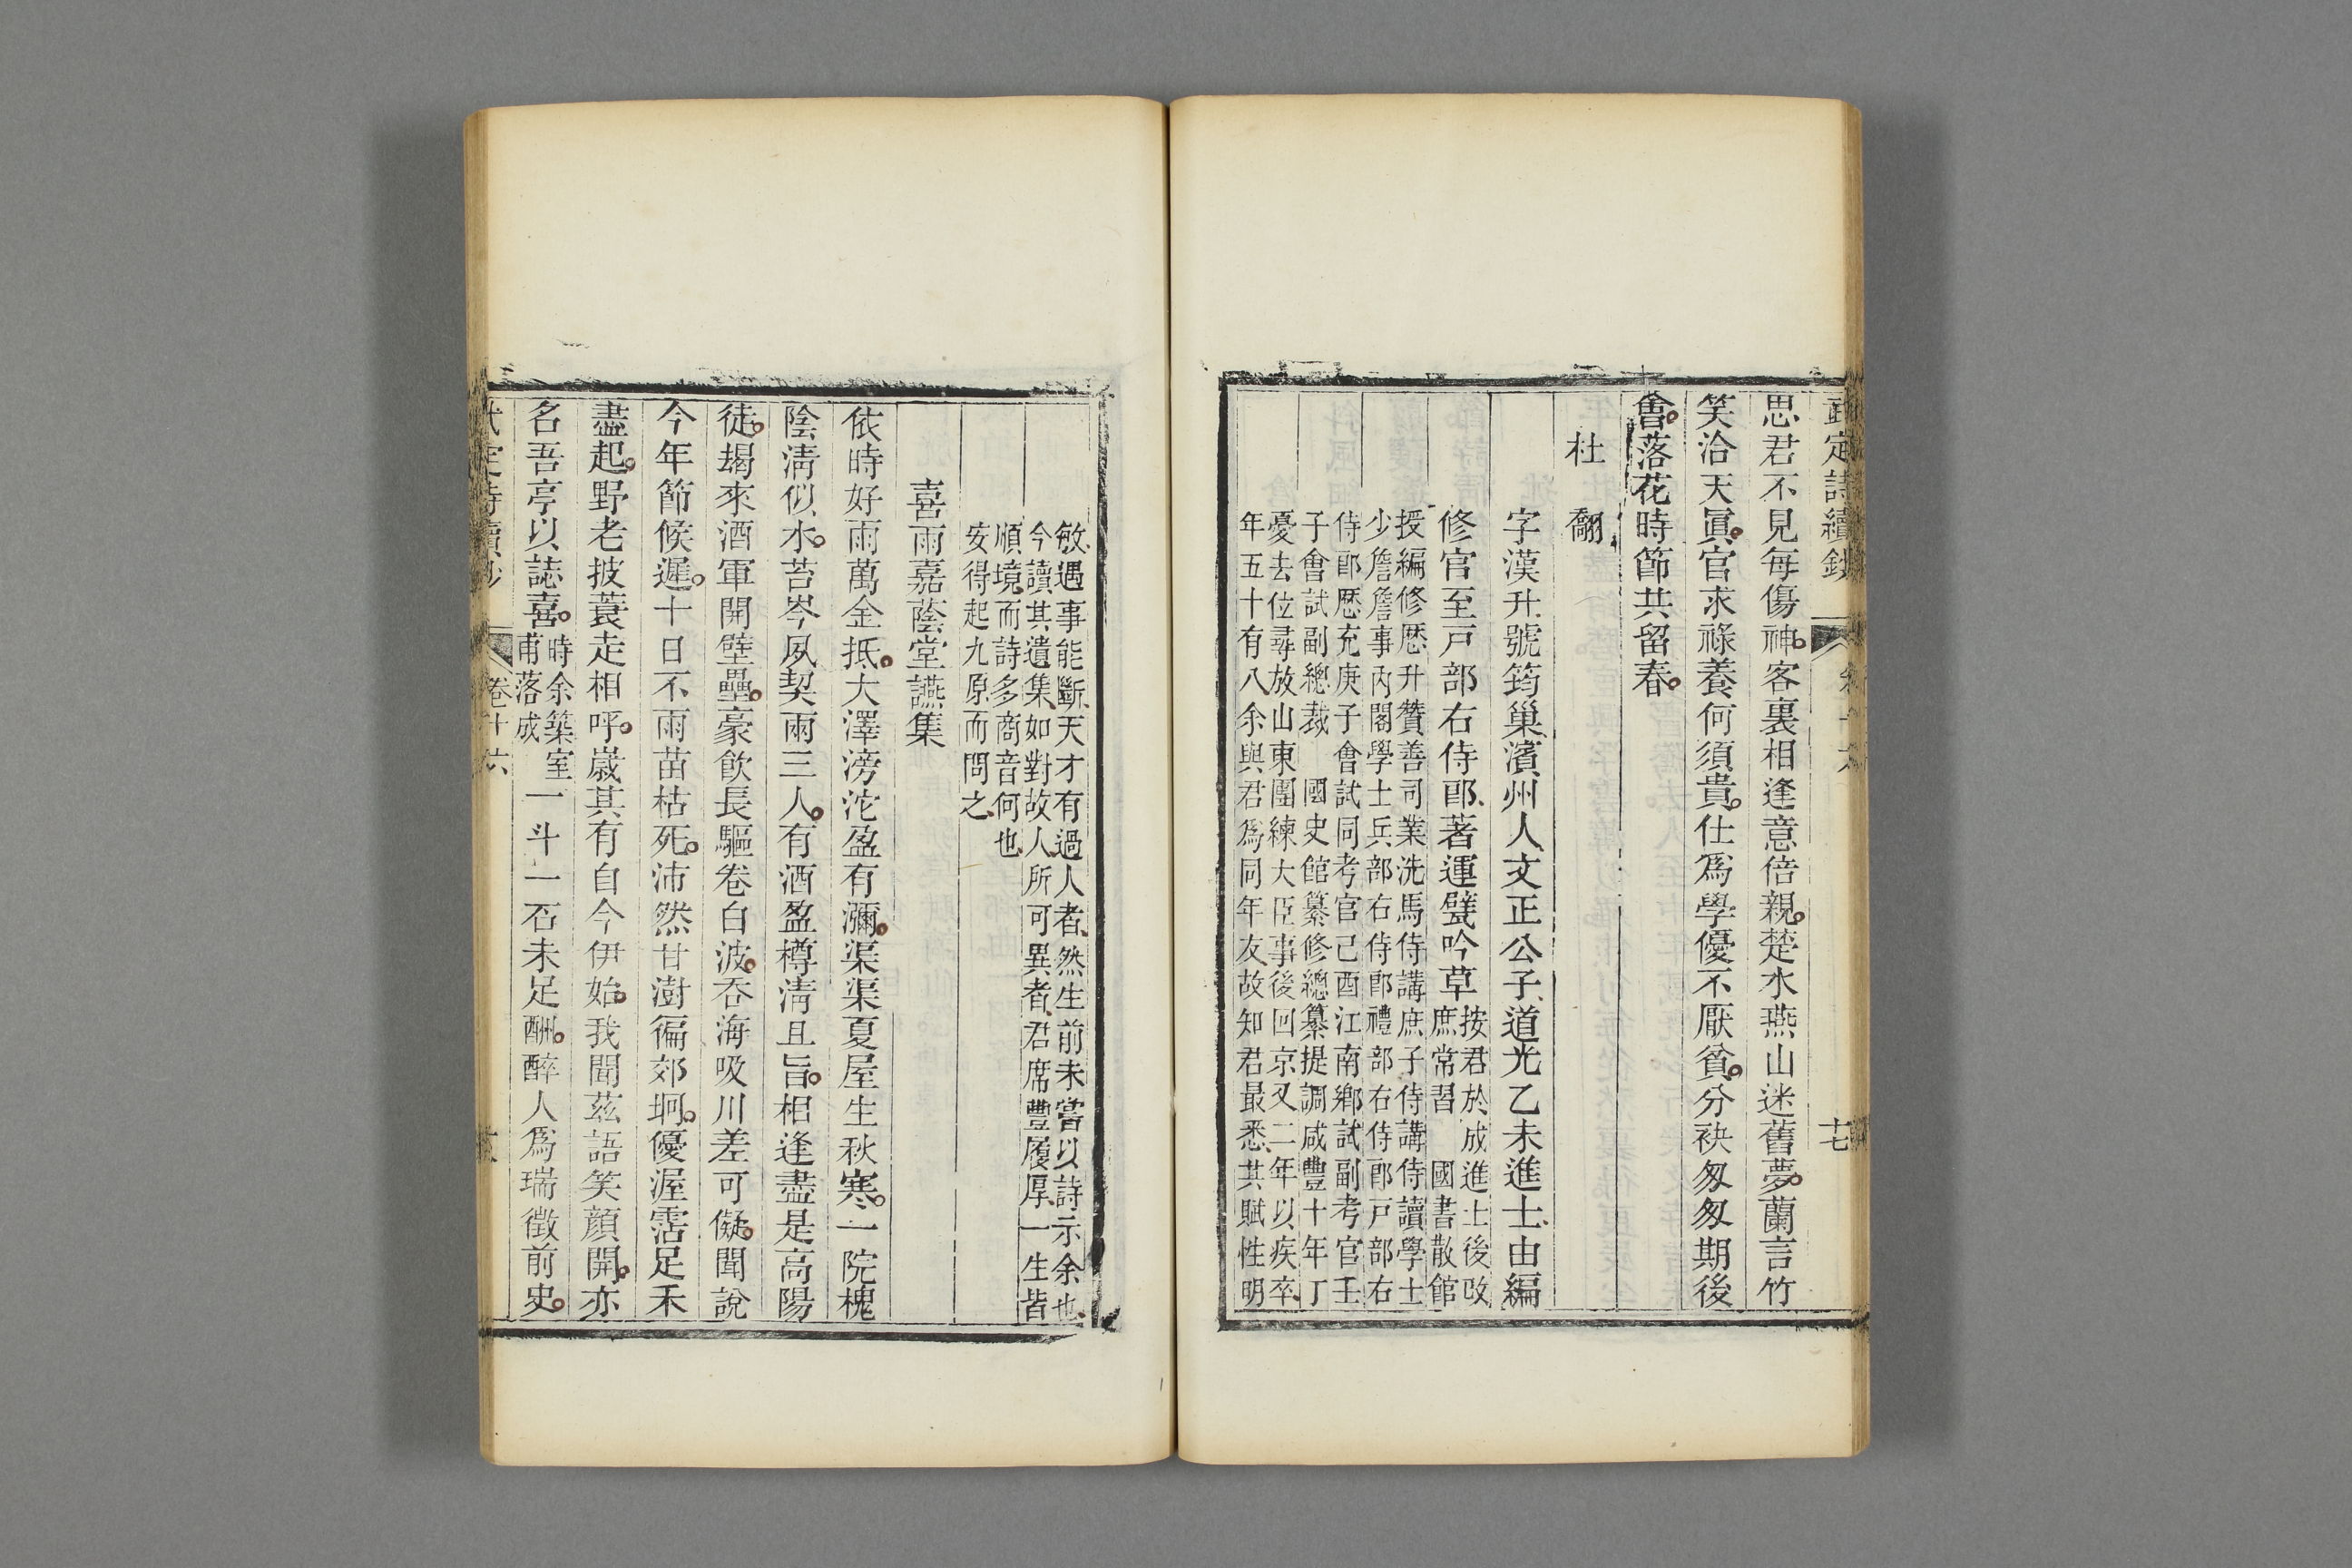 武定詩續鈔 卷十六 十七
思君不見每傷神客裏相逢意倍親楚水燕山迷舊夢蘭言竹
笑洽天眞官求祿養何須貴仕爲學優不厭貧分袂匆匆期後
會落花時節共留春
杜 翮
字漢升號筠巢濱州人文正公子道光乙未進士由編
修官至戸部右侍郎著運甓吟草
按君於成進士後改
庶常習 國書散館
授編修歴升贊善司業洗馬侍講庶子侍講侍讀學士
少詹詹事內閣學士兵部右侍郎禮部右侍郎戸部右
侍郎歴充庚子會試同考官己酉江南鄉試副考官壬
子會試副總裁 國史館纂修總纂提調咸豐十年丁
憂去位尋放山東團練大臣事後回京又二年以疾卒
年五十有八余與君爲同年友故知君最悉其賦性明
敏遇事能斷天才有過人者然生前未嘗以詩示余也
今讀其遺集如對故人所可異者君席豐履厚一生皆
順境而詩多商音何也
安得起九原而問之
喜雨嘉蔭堂讌集
依時好雨萬金抵大澤滂沱盈有瀰渠渠夏屋生秋寒一院槐
陰淸似水苔岑夙契雨三人有酒盈樽淸且旨相逢盡是高陽
徒朅來酒軍開壁壘豪飮長驅卷白波呑海吸川差可儗聞說
今年節候遲十日不雨苗枯死沛然甘澍徧郊坰優渥霑足禾
盡起野老披蓑走相呼歲其有自今伊始我聞茲語笑顏開亦
名吾亭以誌喜
時余築室
甫落成
一斗一石未足酬醉人爲瑞徵前史
武定詩續鈔 卷十六